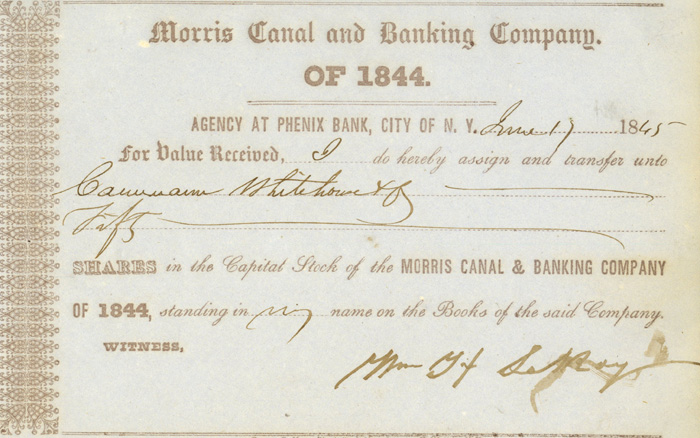 Morris Canal and Banking Company.
OF 1844.
AGENCY AT PHENIX BANK, CITY OF N. Y. June 17 1845
For Value Received, I do hereby assign and transfer unto
Cammann Whitehouse & Co
Fifty
SHARES in the Capital Stock of the MORRIS CANAL & BANKING COMPANY
OF 1844, standing in my name on the Books of the said Company.
WITNESS,
Wm H LeRoy